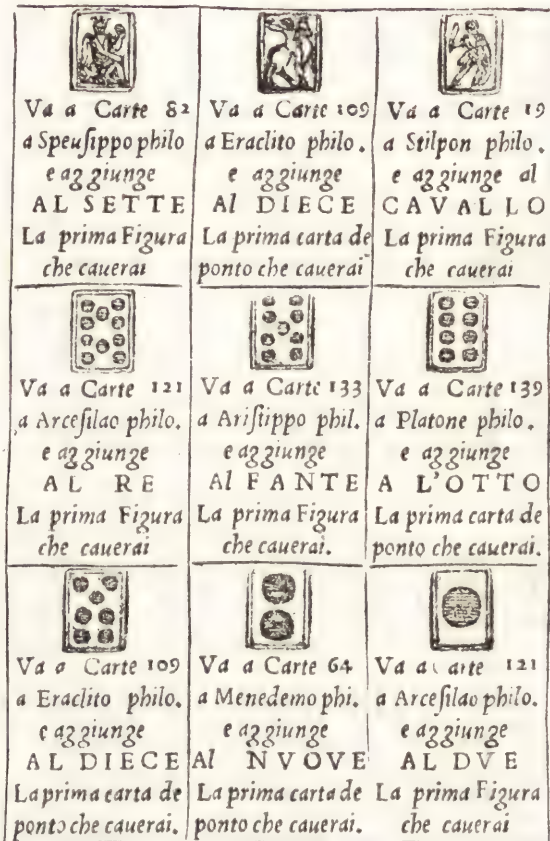 Va a Carte 82
a Speuſippo philo
e aggiunge
AL SETTE
La prima Figura
che cauerai
Va a Carte 109
a Eraclito philo.
e aggiunge
Al DIECE
La prima carta de
ponto che cauerai
Va a Carte 19
a Stilpon philo.
e aggiunge al
CAVALLO
La prima Figura
che cauerai
Va a Carte 121
a Arceſilao philo.
e aggiunge
AL RE
La prima Figura
che cauerai
Va a Carte 133
a Ariſtippo phil.
e aggiunge
Al FANTE
La prima Figura
che cauerai.
Va a Carte 139
a Platone philo.
e aggiunge
A L'OTTO
La prima carta de
ponto che cauerai.
Va a Carte 109
a Eraclito philo.
e aggiunge
AL DIECE
La prima carta de
ponto che cauerai.
Va a Carte 64
a Menedemo phi.
e aggiunge
Al NVOVE
La prima carta de
ponto che cauerai.
Va a arte 121
a Arceſilao philo.
e aggiunge
AL DVE
La prima Figura
che cauerai